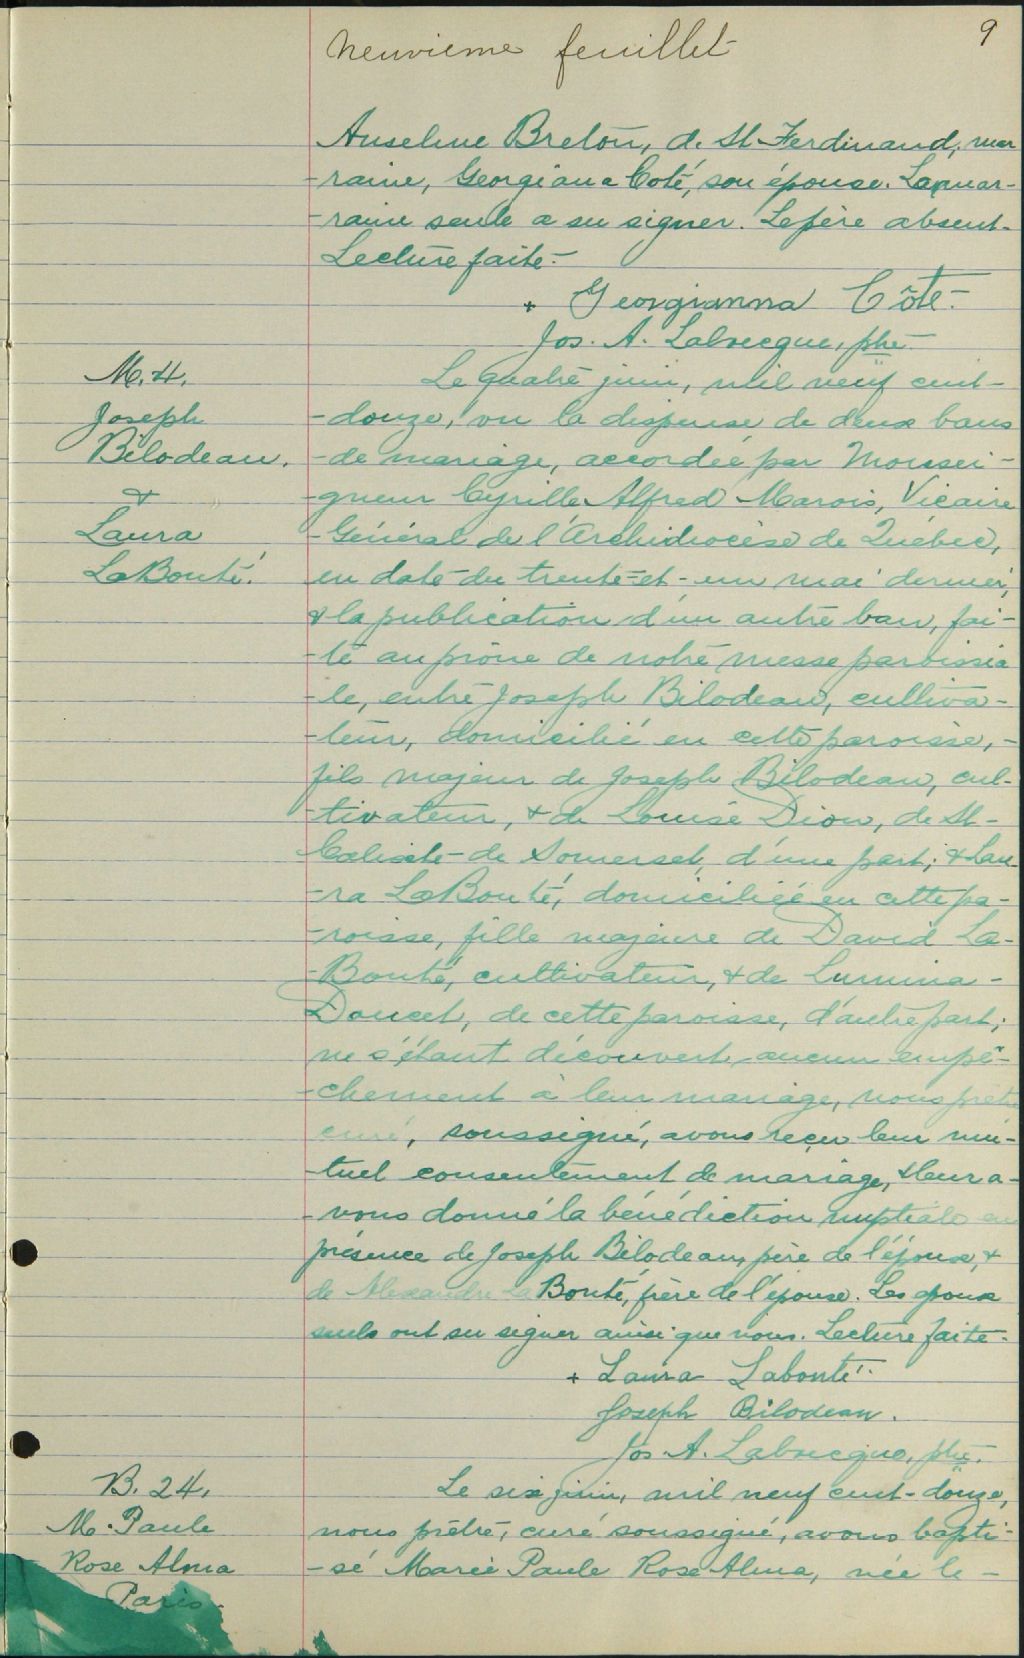 9
neuvième feuillet
Anselme Breton, de St-Ferdinand, mar
-raine, Georgiana Coté, son épouse. La mar-
-raine seule a su signer. Le père absent.
Lecture faite.-
+ Georgianna Côté.
Jos. A. Labrecque, ptre
M. 4.
Joseph
Bilodeau.
&
Laura
LaBonté.
Le quatre juin, mil neuf cent-
-douze, vu la dispense de deux bans
-de mariage, accordée par Monsei-
-gneur Cyrille Alfred Marois, Vicaire
-Général de l'Archidiocèse de Québec,
en date du trente-et-un mai dernier,
& la publication d'un autre ban, fai-
-te au prône de notre messe paroissia
-le, entre Joseph Bilodeau, cultiva-
-teur, domicilié en cette paroisse,-
fils majeur de Joseph Bilodeau, cul-
-tivateur, & de Louise Dion, de St-
Calixte-de Somerset, d'une part; & Lau-
-ra LaBonté, domiciliée en cette pa-
-roisse, fille majeure de David La-
-Bonté, cultivateur, & de Lumina-
Doucet, de cette paroisse, d'autre part;
ne s'étant découvert aucun empê-
-chement à leur mariage, nous prêtre
curé, soussigné, avons reçu leur mu-
-tuel consentement de mariage, & leur a-
-vons donné la bénédiction nuptiale en
présence de Joseph Bilodeau, père de l'époux, &
de Alexandre La Bonté, frère de l'épouse. Les époux
seuls ont su signer ainsi que nous. Lecture faite.
+ Laura Labonté
Joseph Bilodeau.
Jos. A. Labrecque, ptre.
B. 24.
M. Paule
Rose Alma
Paris.
Le six juin, mil neuf cent-douze,
nous prêtre, curé soussigné, avons bapti-
-sé Marie Paule Rose Alma, née le-